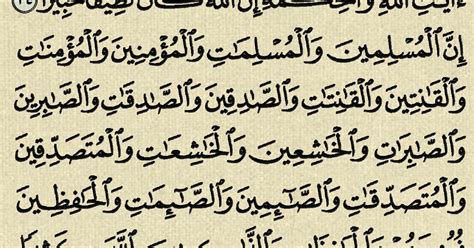 ءَايَٰتِ ٱللَّهِ وَٱلْحِكْمَةِ إِنَّ ٱللَّهَ كَانَ لَطِيفًا خَبِيرًا ٣٤
إِنَّ ٱلْمُسْلِمِينَ وَٱلْمُسْلِمَٰتِ وَٱلْمُؤْمِنِينَ وَٱلْمُؤْمِنَٰتِ
وَٱلْقَٰنِتِينَ وَٱلْقَٰنِتَٰتِ وَٱلصَّٰدِقِينَ وَٱلصَّٰدِقَٰتِ وَٱلصَّٰبِرِينَ
وَٱلصَّٰبِرَٰتِ وَٱلْخَٰشِعِينَ وَٱلْخَٰشِعَٰتِ وَٱلْمُتَصَدِّقِينَ
وَٱلْمُتَصَدِّقَٰتِ وَٱلصَّٰٓئِمِينَ وَٱلصَّٰٓئِمَٰتِ وَٱلْحَٰفِظِينَ